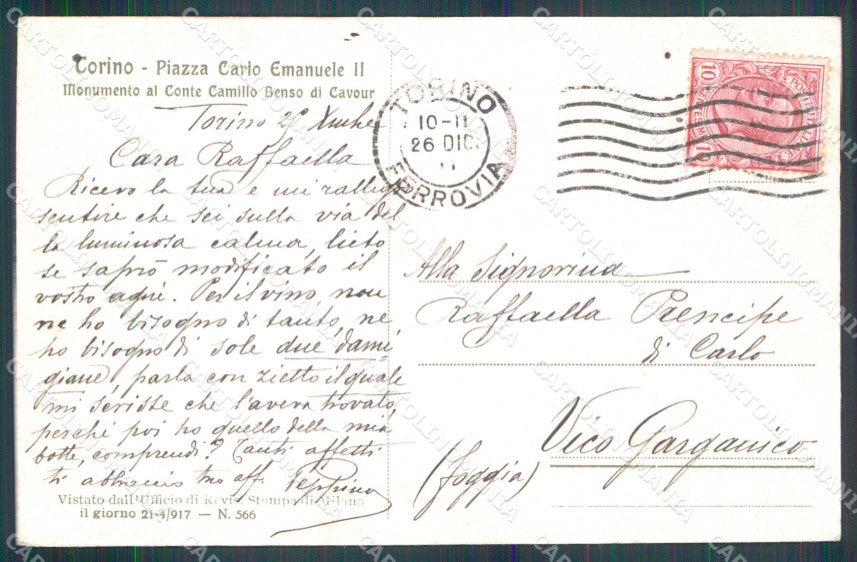 Torino - Piazza Carlo Emanuele II
Monumento al Conte Camillo Benso di Cavour
Torino 26 Xmbre
Cara Raffaella
Ricevo la tua e mi rallegro
sentire che sei sulla via del
la luminosa calma, lieto
se saprò modificato il
vostro agire. Per il vino, non
ne ho bisogno di tanto, ne
ho bisogno di sole due dami
giane, parla con zietto il quale
mi scrisse che l'aveva trovato,
perché poi ho quello della mia
botte, comprendi? Tanti affetti
ti abbraccio tuo aff. Peppino
Vistato dall'Ufficio di Revis. Stampa di Milano
il giorno 21-4/917 — N. 566
TORINO
10-11
26 DIC.
FERROVIA
10
Alla Signorina
Raffaella Prencipe
di Carlo
Vico Garganico
(Foggia)
CARTOLINOMANIA